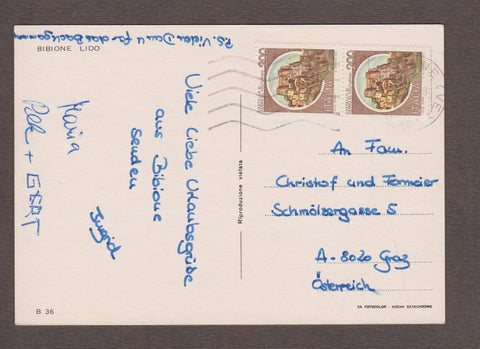 P.S. Vielen Dank für das Backgammon
BIBIONE LIDO
Viele liebe Urlaubsgrüße
aus Bibione
senden
Ingrid
Maria
+ GERT
Riproduzione vietata
200
ITALIA
200
ITALIA
An Fam.
Christof und Formeier
Schmölzergasse 5
A-8020 Graz
Österreich
B 36
FOTOCOLOR - KODAK EKTACHROME